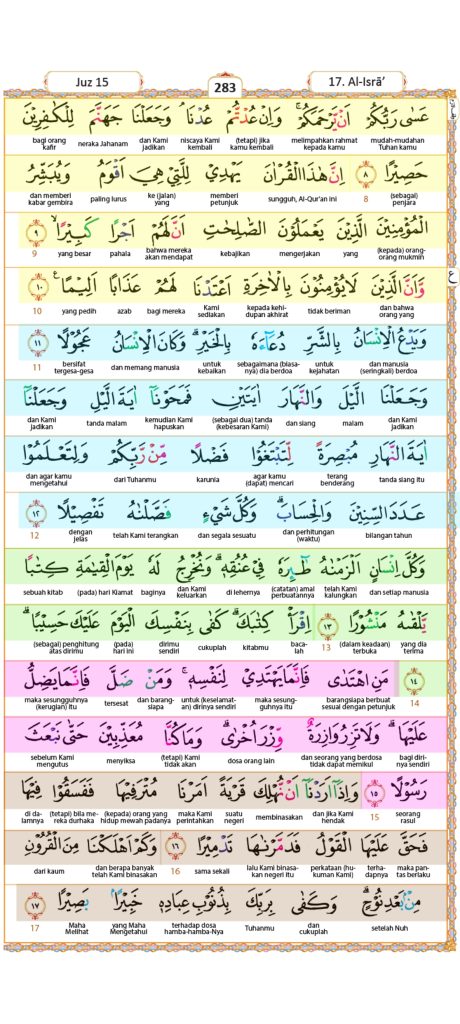 Juz 15
283
17. Al-Isrā’
عَسٰى رَبُّكُمْ اَنْ يَّرْحَمَكُمْۚ وَاِنْ عُدْتُّمْ عُدْنَاۘ وَجَعَلْنَا جَهَنَّمَ لِلْكٰفِرِيْنَ
mudah-mudahan Tuhan kamu melimpahkan rahmat kepada kamu (tetapi) jika kamu kembali niscaya Kami kembali dan Kami jadikan neraka Jahanam bagi orang kafir
حَصِيْرًا ٨ اِنَّ هٰذَا الْقُرْاٰنَ يَهْدِيْ لِلَّتِيْ هِيَ اَقْوَمُ وَيُبَشِّرُ
(sebagai) penjara 8 sungguh, Al-Qur’an ini memberi petunjuk ke (jalan) yang paling lurus dan memberi kabar gembira
الْمُؤْمِنِيْنَ الَّذِيْنَ يَعْمَلُوْنَ الصّٰلِحٰتِ اَنَّ لَهُمْ اَجْرًا كَبِيْرًاۙ ٩
(kepada) orang-orang mukmin yang mengerjakan kebajikan bahwa mereka akan mendapat pahala yang besar 9
وَّاَنَّ الَّذِيْنَ لَا يُؤْمِنُوْنَ بِالْاٰخِرَةِ اَعْتَدْنَا لَهُمْ عَذَابًا اَلِيْمًاࣖ ١٠
ع
dan bahwa orang yang tidak beriman kepada kehidupan akhirat Kami sediakan bagi mereka azab yang pedih 10
وَيَدْعُ الْاِنْسَانُ بِالشَّرِّ دُعَاۤءَهٗ بِالْخَيْرِۗ وَكَانَ الْاِنْسَانُ عَجُوْلًا ١١
dan manusia (seringkali) berdoa untuk kejahatan sebagaimana (biasanya) dia berdoa untuk kebaikan dan memang manusia bersifat tergesa-gesa 11
وَجَعَلْنَا الَّيْلَ وَالنَّهَارَ اٰيَتَيْنِ فَمَحَوْنَآ اٰيَةَ الَّيْلِ وَجَعَلْنَآ
dan Kami jadikan malam dan siang (sebagai dua) tanda (kebesaran Kami) kemudian Kami hapuskan tanda malam dan Kami jadikan
اٰيَةَ النَّهَارِ مُبْصِرَةً لِّتَبْتَغُوْا فَضْلًا مِّنْ رَّبِّكُمْ وَلِتَعْلَمُوْا
tanda siang itu terang benderang agar kamu (dapat) mencari karunia dari Tuhanmu dan agar kamu mengetahui
عَدَدَ السِّنِيْنَ وَالْحِسَابَۗ وَكُلَّ شَيْءٍ فَصَّلْنٰهُ تَفْصِيْلًا ١٢
bilangan tahun dan perhitungan (waktu) dan segala sesuatu telah Kami terangkan dengan jelas 12
وَكُلَّ اِنْسَانٍ اَلْزَمْنٰهُ طٰۤىِٕرَهٗ فِيْ عُنُقِهٖۗ وَنُخْرِجُ لَهٗ يَوْمَ الْقِيٰمَةِ كِتٰبًا
dan setiap manusia telah Kami kalungkan (catatan) amal perbuatannya di lehernya dan Kami keluarkan baginya (pada) hari Kiamat sebuah kitab
يَّلْقٰىهُ مَنْشُوْرًا ١٣ اِقْرَأْ كِتٰبَكَۗ كَفٰى بِنَفْسِكَ الْيَوْمَ عَلَيْكَ حَسِيْبًاۗ
yang dia terima (dalam keadaan) terbuka 13 bacalah kitabmu cukuplah dirimu sendiri (pada) hari ini (sebagai) penghitung atas dirimu
١٤ مَنِ اهْتَدٰى فَاِنَّمَا يَهْتَدِيْ لِنَفْسِهٖۚ وَمَنْ ضَلَّ فَاِنَّمَا يَضِلُّ
14 barangsiapa berbuat sesuai dengan petunjuk maka sesungguhnya itu untuk (keselamatan) dirinya sendiri dan barangsiapa tersesat maka sesungguhnya (kerugian) itu
عَلَيْهَاۗ وَلَا تَزِرُ وَازِرَةٌ وِّزْرَ اُخْرٰىۗ وَمَا كُنَّا مُعَذِّبِيْنَ حَتّٰى نَبْعَثَ
bagi dirinya sendiri dan seorang yang berdosa tidak dapat memikul dosa orang lain (tetapi) Kami tidak akan menyiksa sebelum Kami mengutus
رَسُوْلًا ١٥ وَاِذَآ اَرَدْنَآ اَنْ نُّهْلِكَ قَرْيَةً اَمَرْنَا مُتْرَفِيْهَا فَفَسَقُوْا فِيْهَا
seorang rasul 15 dan jika Kami hendak membinasakan suatu negeri maka Kami perintahkan (kepada) orang yang hidup mewah padanya (tetapi) bila mereka durhaka di dalamnya
فَحَقَّ عَلَيْهَا الْقَوْلُ فَدَمَّرْنٰهَا تَدْمِيْرًا ١٦ وَكَمْ اَهْلَكْنَا مِنَ الْقُرُوْنِ
maka pantas berlaku terhadapnya perkataan (hukuman Kami) lalu Kami binasakan negeri itu sama sekali 16 dan berapa banyak telah Kami binasakan dari kaum
مِنْۢ بَعْدِ نُوْحٍۗ وَكَفٰى بِرَبِّكَ بِذُنُوْبِ عِبَادِهٖ خَبِيْرًاۢ بَصِيْرًا ١٧
setelah Nuh dan cukuplah Tuhanmu terhadap dosa hamba-hamba-Nya yang Maha Mengetahui Maha Melihat 17